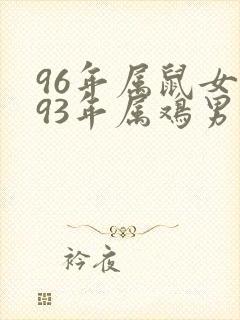 96年属鼠女
93年属鸡男
衿夜